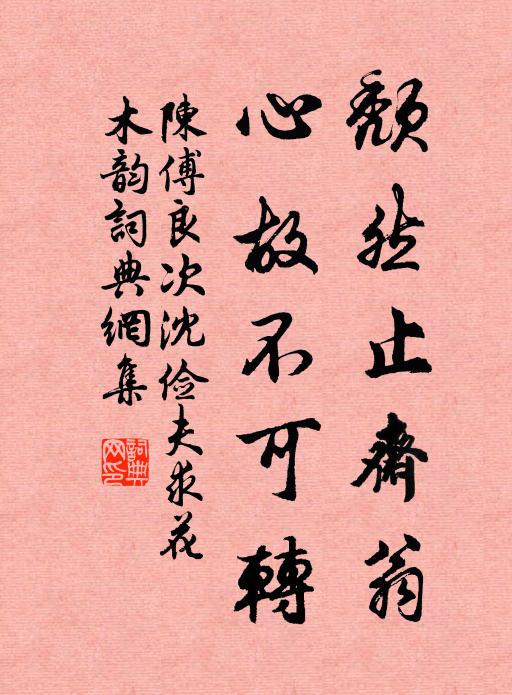 頹然止齋翁
心故不可轉
陳傅良次沈儉夫求花
木韵詞典網集
詞典网印